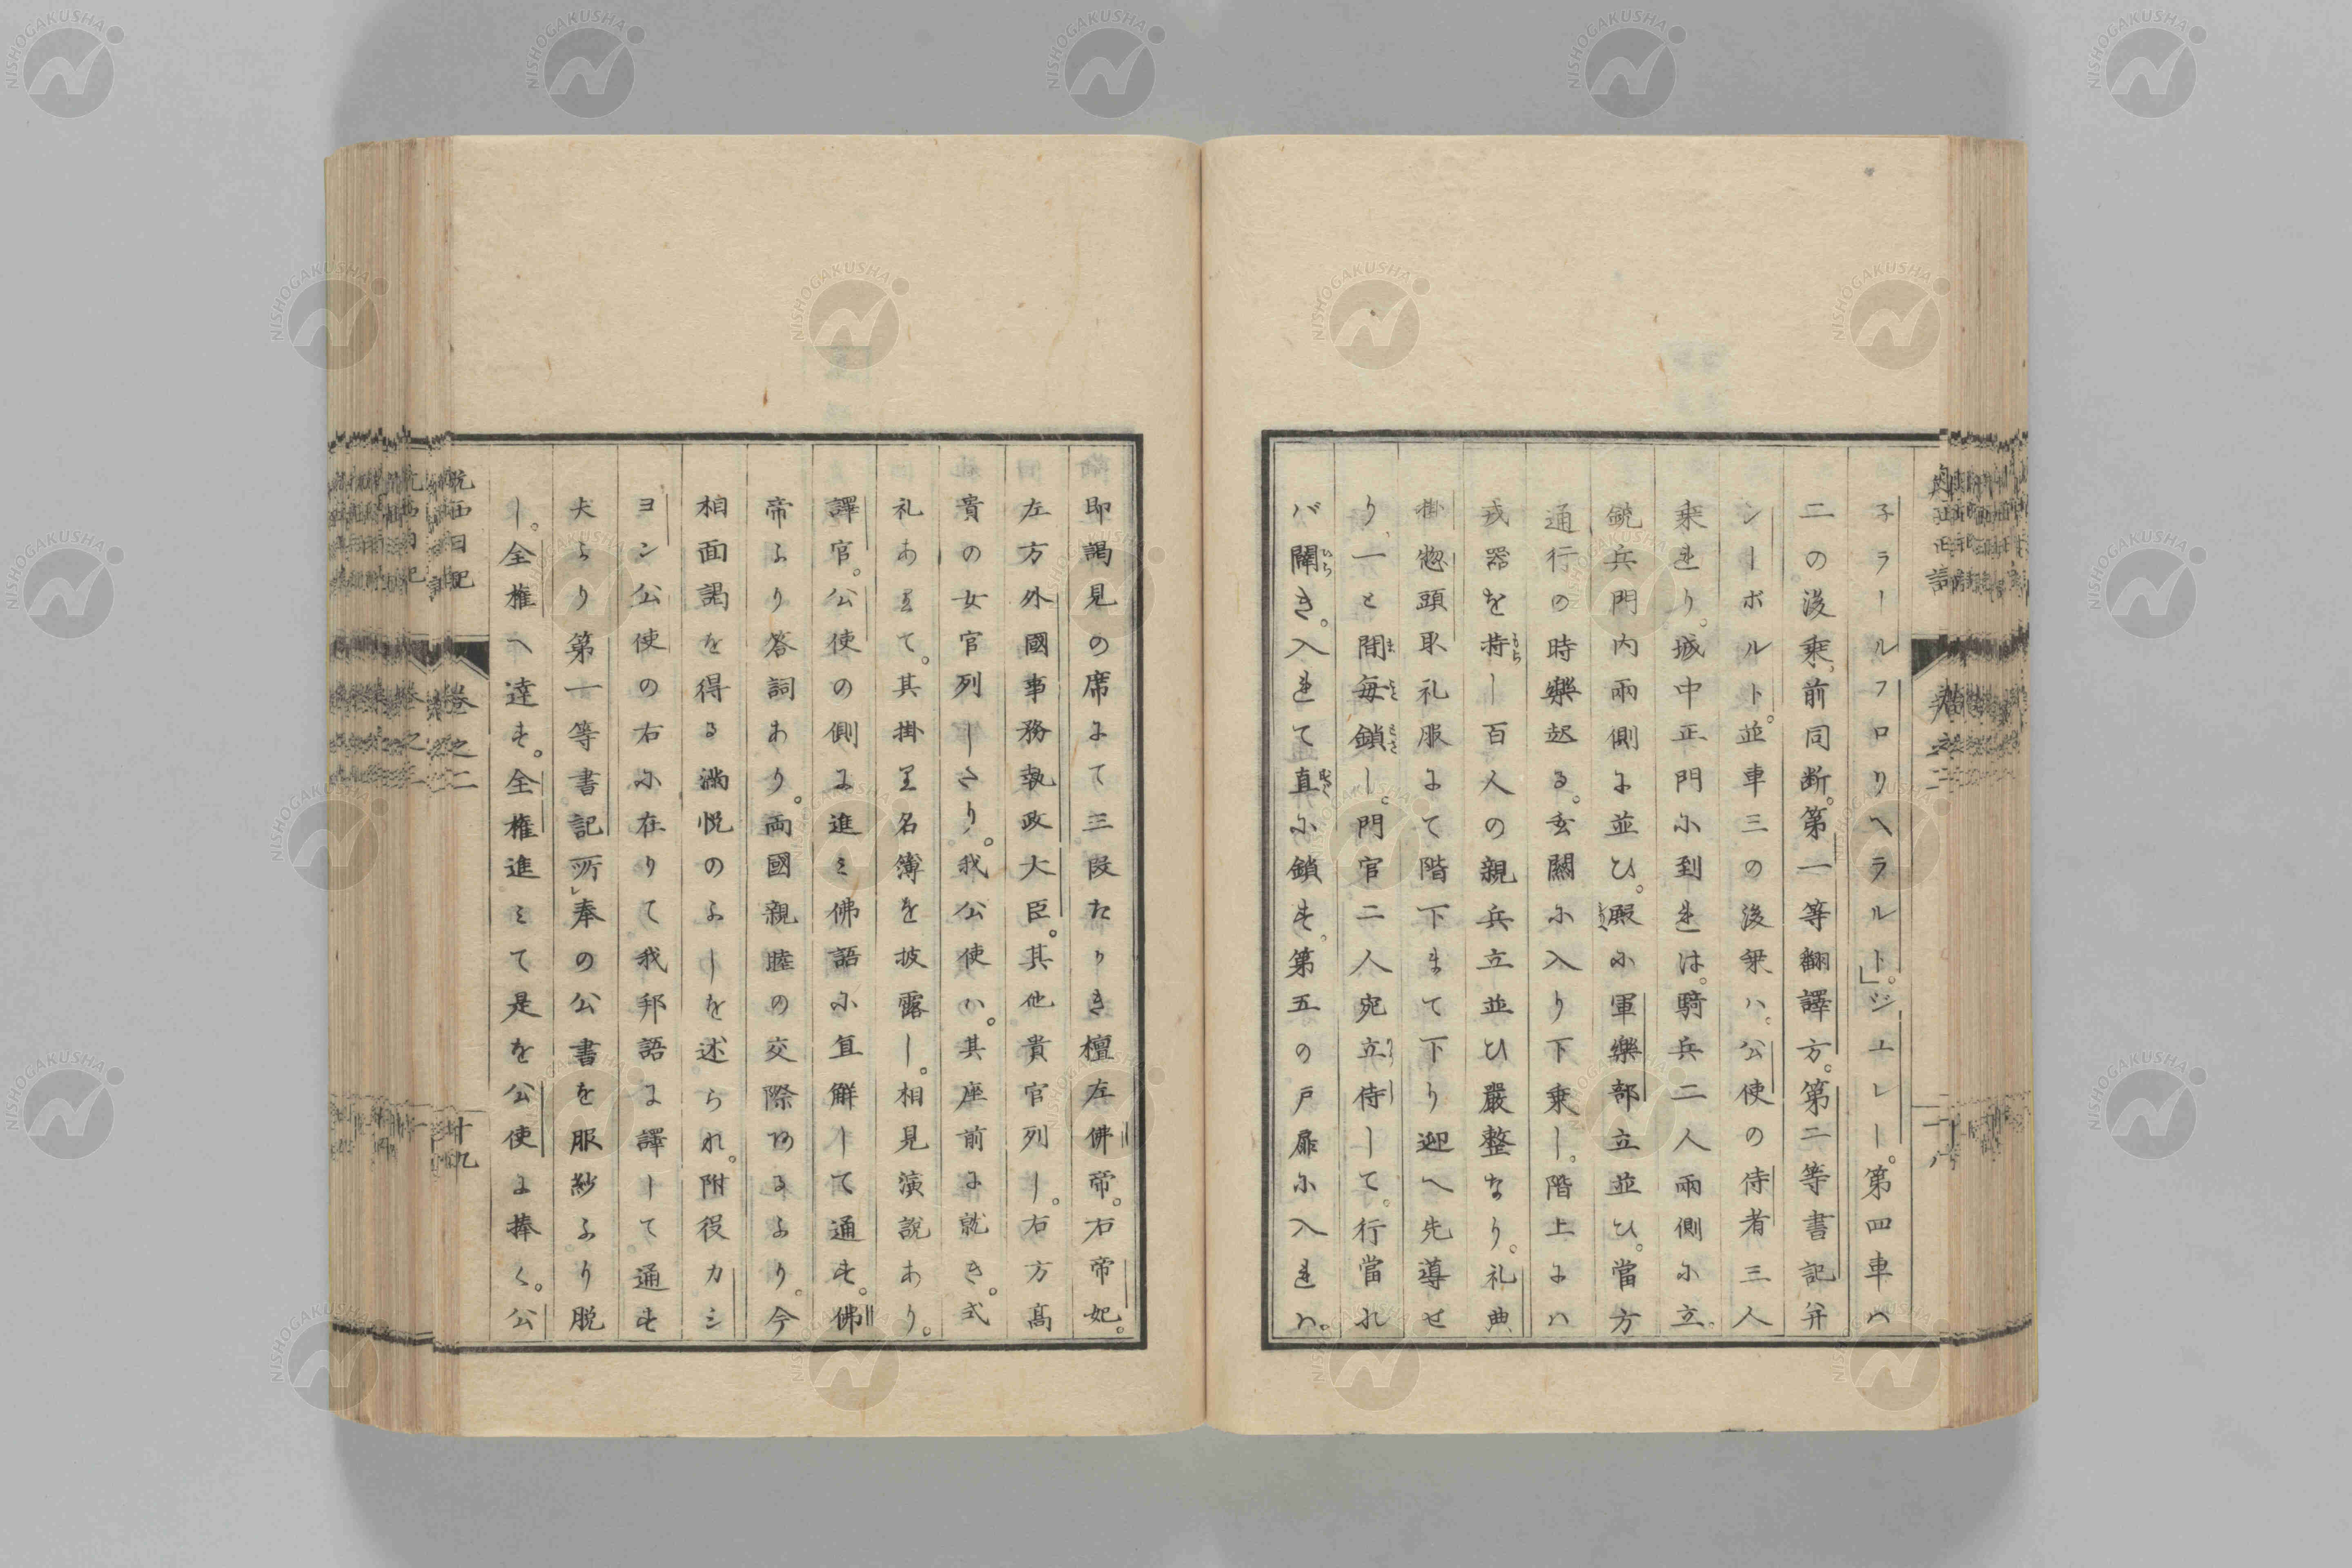 子ラールフロリヘラルト」。ジエレー。第四車ハ
二の後乗、前同断。第一等翻譯方。第二等書記并
シーボルト。並車三の後乗ハ。公使の侍者三人
乗れり。城中正門に到れは。騎兵二人兩側に立。
銃兵門内兩側に並ひ。殿に軍樂部立並ひ。當方
通行の時樂起る。玄關に入り下乗し。階上にハ
戎器を持し百人の親兵立並ひ嚴整なり。礼典
掛惣頭取礼服にて階下まて下り迎へ先導せ
り、一と間毎鎖し。門官二人宛立侍して。行當れ
バ闢き。入れて直に鎖す。第五の戸扉に入れハ。
即謁見の席にて三段たりき檀左佛帝。右帝妃。
左方外國事務執政大臣。其他貴官列し。右方髙
貴の女官列しさり。我公使ハ。其座前に就き。式
礼あ里て。其掛里名簿を披露し。相見演説あり。
譯官。公使の側に進ミ佛語に直觧して通す。佛
帝より答詞あり。両國親睦の交際あるより。今
相面謁を得る満悦のよしを述られ。附役カシ
ヨン公使の右に在りて我邦語に譯して通す
夫より第一等書記所」奉の公書を服紗より脱
し。全権へ達す。全権進ミて是を公使に捧く。公
航西日記
卷之二
十九
NISHOGAKUSHA